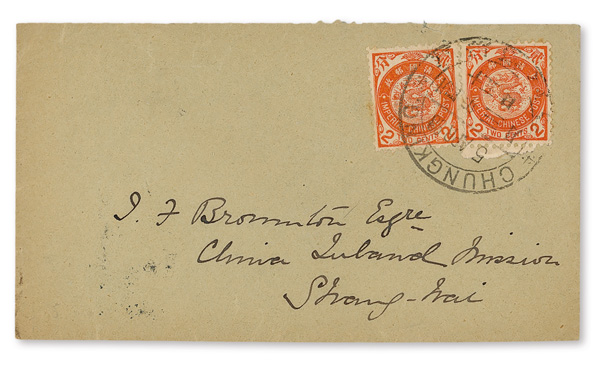 IMPERIAL CHINESE POST
2 TWO CENTS 2
IMPERIAL CHINESE POST
2 TWO CENTS 2
CHUNGK
J. F Broumton Esqre
China Inland Mission
Shang-hai